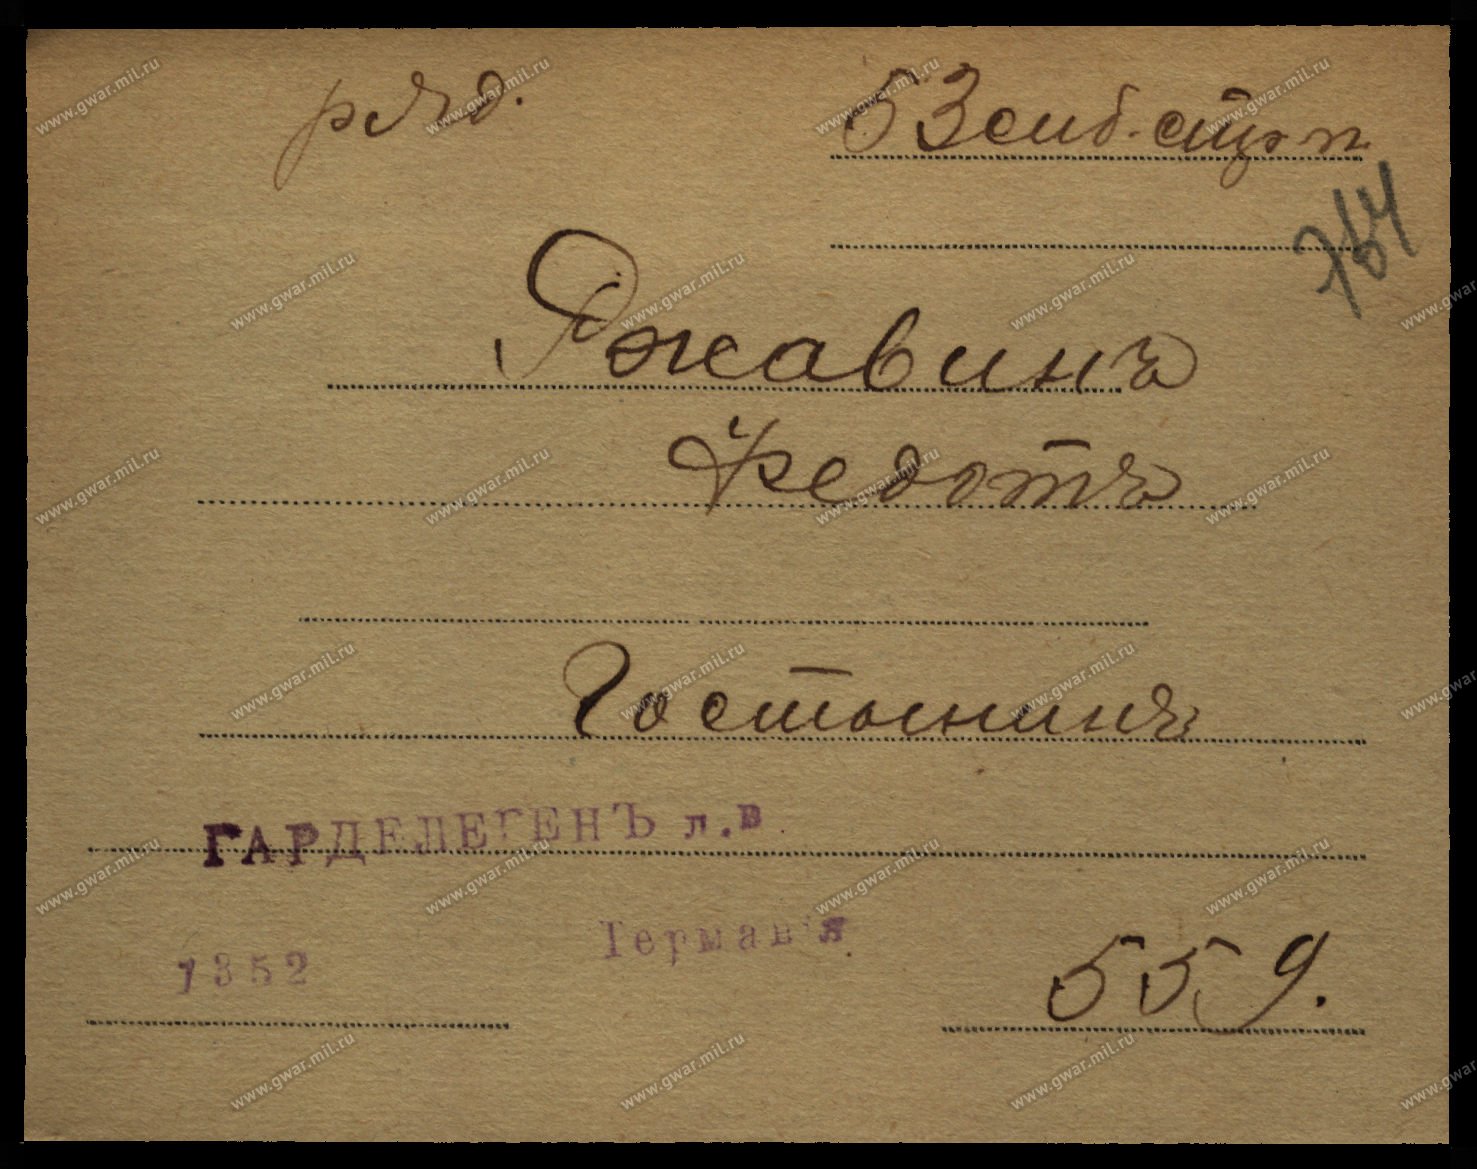 ряд.
53 сиб. стр п
764
Ржавинъ
Федотъ
Гостынинъ
ГАРДЕЛЕГЕНЪ л.в.
Германія
1352
559.
www.gwar.mil.ru